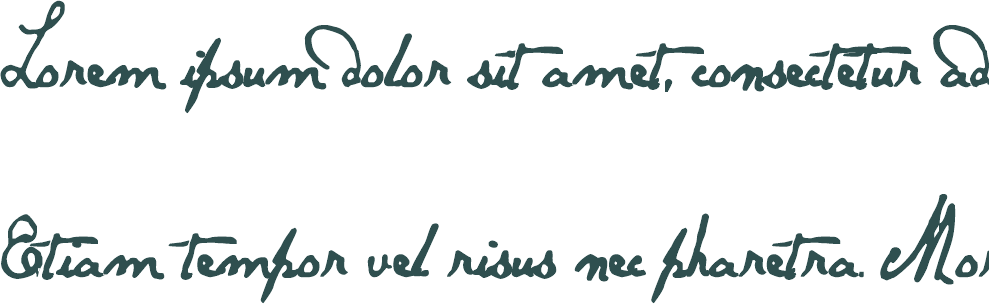 Lorem ipsum dolor sit amet, consectetur ad
Etiam tempor vel risus nec pharetra. Mor